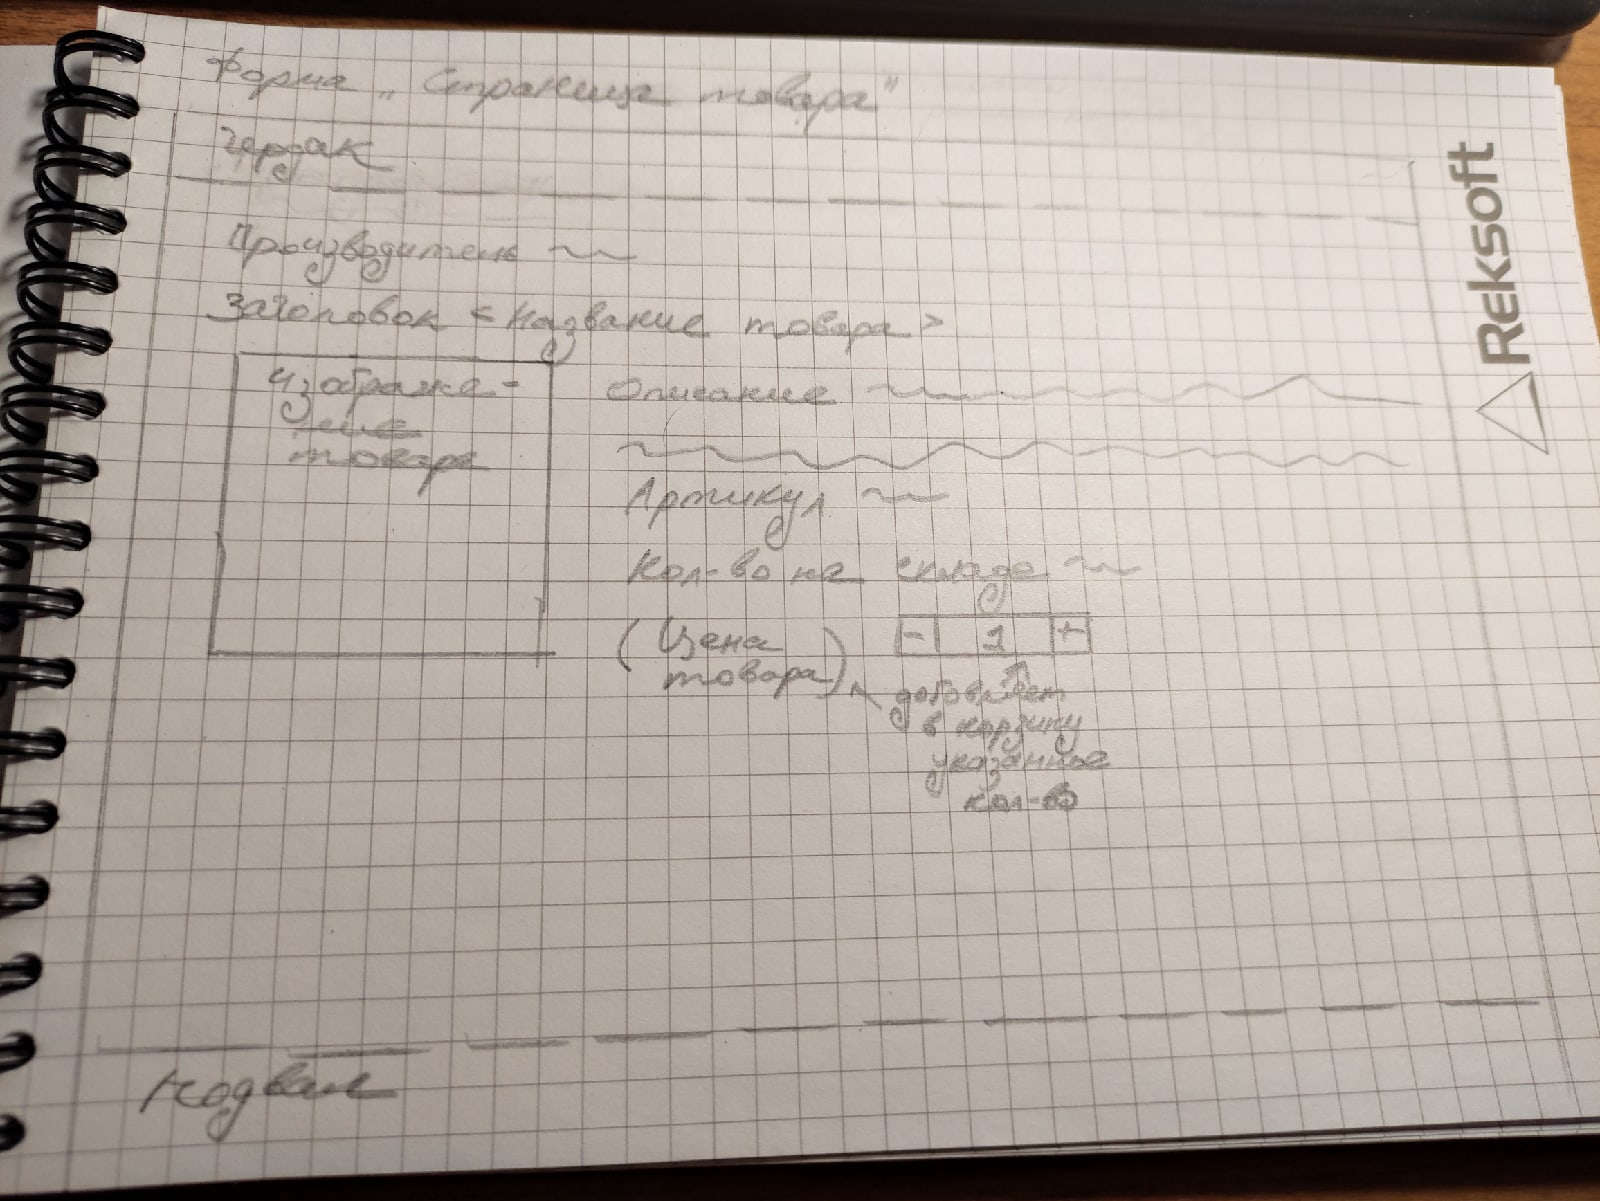 Форма „Страница товара"
Чердак
Производитель
Заголовок < название товара >
изображе-
ние
товара
Описание
Артикул
Кол-во на складе
(Цена
товара)
- 1 +
добавляет
в корзину
указанное
кол-во
Подвал
Reksoft